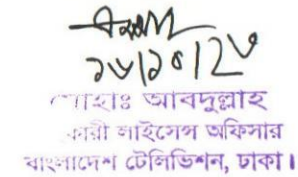 ১৮/১০/২৩
মোহাঃ আবদুল্লাহ
কারী লাইসেন্স অফিসার
বাংলাদেশ টেলিভিশন, ঢাকা।